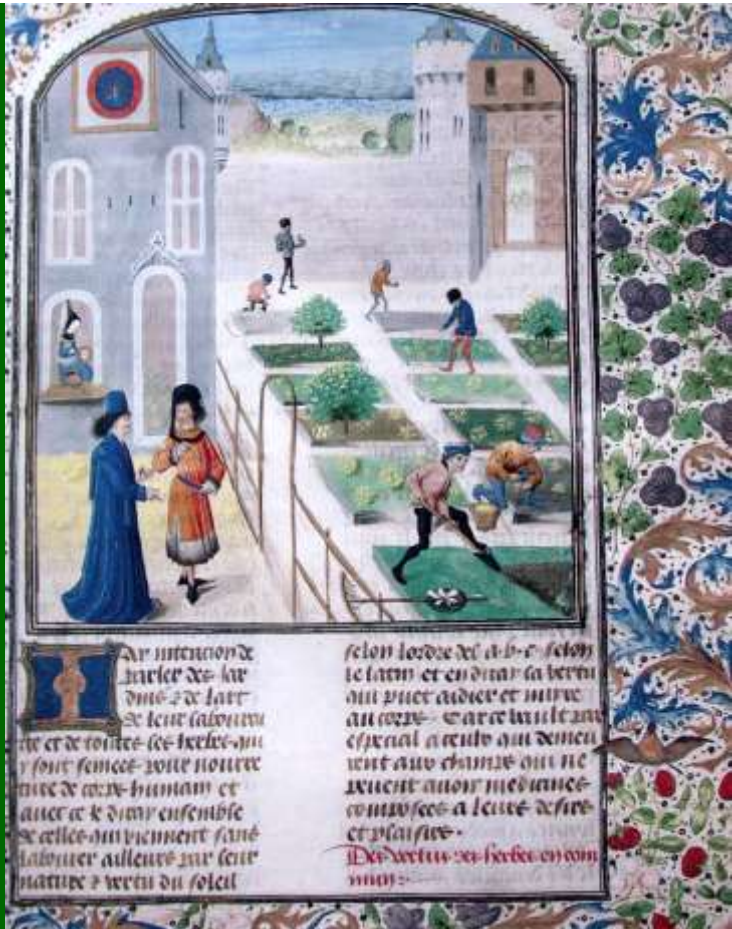 Iay intencion de
parler des Iar
dins & de lart
de leur laboureu
re et de toutes les herbes qui
y sont semees pour nourre
ture de corps humain et
auec ce ie diray ensemble
de celles qui viennent sans
labourer ailleurs par leur
nature & vertu du soleil
selon lordre de a.b.c. selon
le latin et en diray la vertu
qui puet aidier et nuire
au corps. Car ce vault par
especial a ceulx qui demeu
rent aux champs qui ne
peuent auoir medicines
composees a leurs desirs
et plaisirs.
Des vertus des herbes en com
mun.